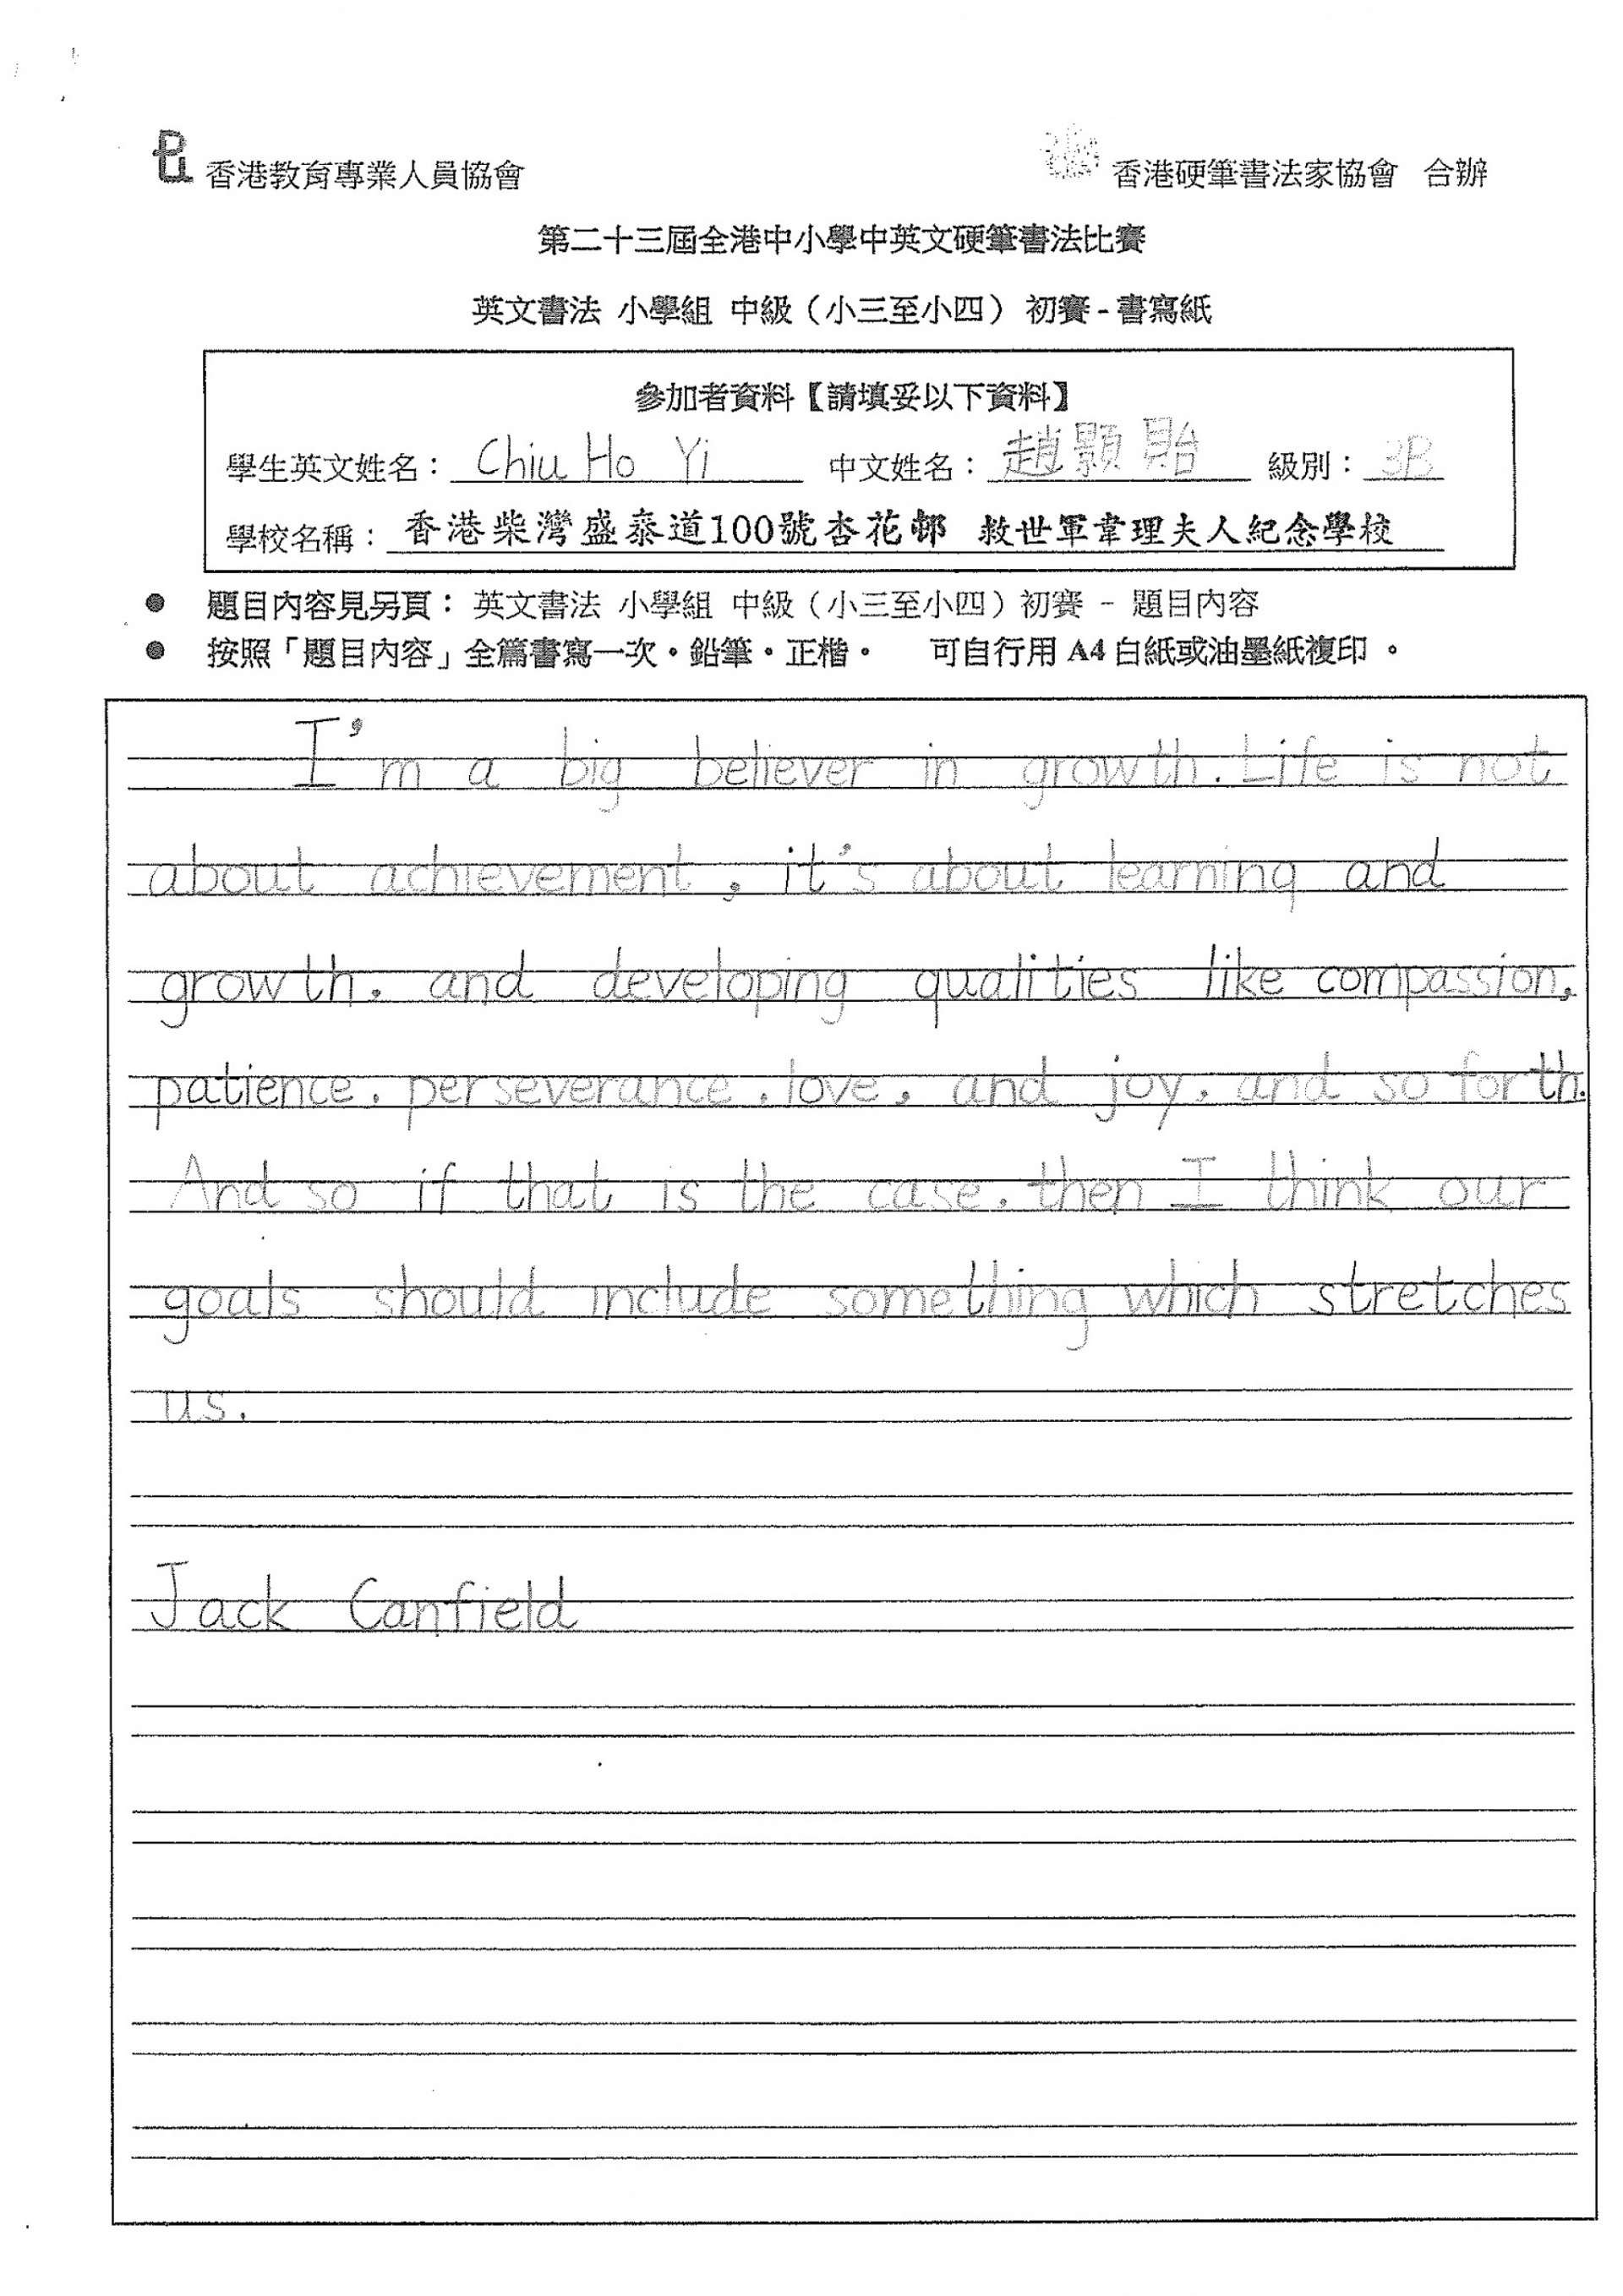 香港教育專業人員協會
香港硬筆書法家協會 合辦
第二十三屆全港中小學中英文硬筆書法比賽
英文書法 小學組 中級（小三至小四） 初賽 - 書寫紙
參加者資料【請填妥以下資料】
學生英文姓名： Chiu Ho Yi 中文姓名： 趙顥貽 級別： 3B
學校名稱： 香港柴灣盛泰道100號杏花邨 救世軍韋理夫人紀念學校
● 題目內容見另頁： 英文書法 小學組 中級（小三至小四）初賽 - 題目內容
● 按照「題目內容」全篇書寫一次。鉛筆。正楷。 可自行用 A4 白紙或油墨紙複印 。
I'm a big believer in growth. Life is not
about achievement, it's about learning and
growth. and developing qualities like compassion,
patience. perseverance. love, and joy, and so forth.
And so if that is the case, then I think our
goals should include something which stretches
us.
Jack Canfield